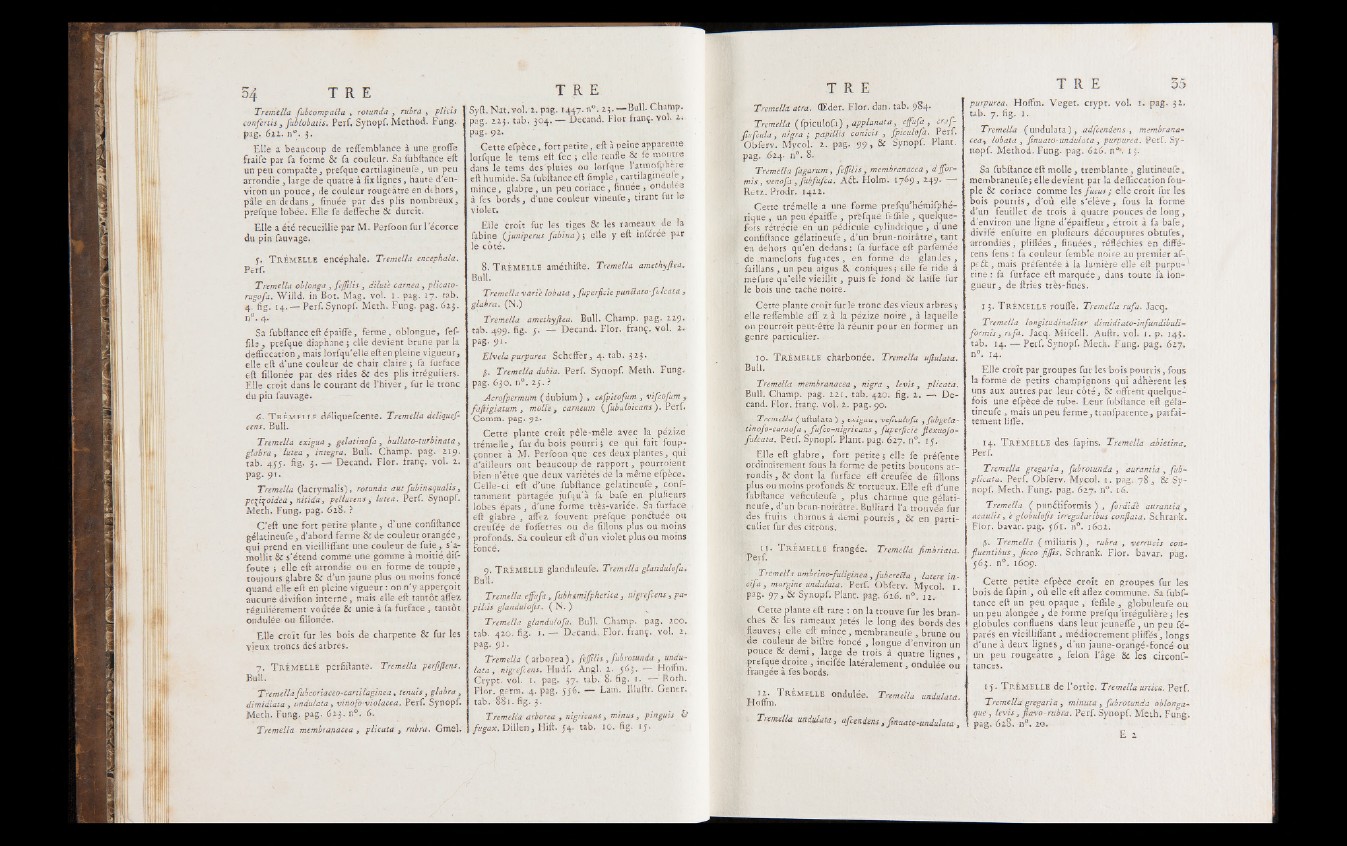 54 T R E
Tremella subcompacta, rotunda, rubra, plicis
confertis, sublobatis. Pers. Synops. Method. Fung.
pag. 622. n°. 3.
Elle a beaucoup de ressemblance à une grosse
fraise par sa forme & sa couleur. Sa substance est
un peu compacte, presque cartilagineuse, un peu
arrondie, large de quatre à six lignes, haute d'en-
viron un pouce, de couleur rougeâtre en dehors,
pâle en dedans, sinuée par des plis nombreux,
presque lobée. Elle se dessèche & durcit.
Elle a été recueillie par M. Persoon sur l'écorce
du pin sauvage.
5. TRÉMELLE encéphale. Tremella encephala.
Pers.
Tremella oblonga, sessilis, dilutè carnea, plicato-
rugosa. Willd. in Bot. Mag. vol. 1. pag. 17. tab.
4. fig. 14. — Pers. Synops. Meth. Fung. pag. 623.
n°. 4.
Sa substance est épaisse, ferme, oblongue, ses-
sile, presque diaphane; elle devient brune par la
dessiccation, mais lorsqu'elle est en pleine vigueur,
elle est d'une couleur de chair claire; sa surface
est sillonée par des rides & des plis irréguliers.
Elle croît dans le courant de l'hiver, sur le tronc
du pin sauvage.
6. TRÉMELLE déliquescente. Tremella deliques-
cens. Bull.
Tremella exigua, gelatinosa, bullato-turbinata,
glabra, lutea, integra. Bull. Champ. pag. 219.
tab. 455. fig. 3. — Decand. Flor. franç. vol. 2.
pag. 91.
Tremella (lacrymalis), rotunda aut subinæqualis,
pezizoidea, nitida, pellucens, lutea. Pers. Synops.
Meth. Fung. pag. 628. ?
C'est une fort petite plante, d'une consistance
gélatineuse, d'abord ferme & de couleur orangée,
qui prend en vieillissant une couleur de suie, s'a-
mollit & s'étend comme une gomme à moitié dis-
soute; elle est arrondie ou en forme de toupie,
toujours glabre & d'un jaune plus ou moins foncé
quand elle est en pleine vigueur: on n'y apperçoit
aucune division interne, mais elle est tantôt assez
régulièrement voûtée & unie à sa surface, tantôt
ondulée ou sillonée.
Elle croît sur les bois de charpente & sur les
vieux troncs des arbres.
7. TRÉMELLE persistante. Tremella persistens.
Bull.
Tremella subcoriaceo-cartilaginea, tenuis, glabra,
dimidiata, undulata, vinoso-violacea. Pers. Synops.
Meth. Fung. pag. 623. n°. 6.
Tremella membranacea, plicata, rubra. Gmel.
T R E
Syst. Nat. vol. 2. pag. 1447. n°. 23. — Bull. Champ.
pag. 223. tab. 304. — Decand. Flor franç. vol. 2.
pag. 92.
Cette espèce, fort petite, est à peine apparente
lorsque le tems est sec; elle renfle & se montre
dans le tems des pluies ou lorsque l'atmosphère
est humide. Sa substance est simple, cartilagineuse,
mince, glabre, un peu coriace, sinuée, ondulée
à ses bords, d'une couleur vineuse, tirant sur le
violet.
Elle croît sur les tiges & les rameaux de la
sabine (juniperus sabina); elle y est insérée par
le côté.
8. TRÉMELLE améthiste. Tremella amethystea.
Bull.
Tremella variè lobata, superficie punctato-sulcata,
glabra. (N.)
Tremella amethystea. Bull. Champ. pag. 229.
tab. 499. fig. 5. — Decand. Flor. franç. vol. 2.
pag. 91.
Elvela purpurea Scheffer, 4. tab. 323.
β. Tremella dubia. Pers. Synops. Meth. Fung.
pag. 630. n°. 25. ?
Acrospermum (dubium), cespitosum, viscosum,
fastigiatum, molle, carneum (subalbicans). Pers.
Comm. pag. 92.
Cette plante croît pêle-mêle avec la pézize
trémelle, sur du bois pourri; ce qui fait soup-
çonner à M. Persoon que ces deux plantes, qui
d'ailleurs ont beaucoup de rapport, pourroient
bien n'être que deux variétés de la même espèce.
Celle-ci est d'une substance gelatineuse, cons-
tamment partagée jusqu'à sa base en plusieurs
lobes épais, d'une forme très-variée. Sa surface
est glabre, assez souvent presque ponctuée ou
creusée de fossettes ou de sillons plus ou moins
profonds. Sa couleur est d'un violet plus ou moins
foncé.
9. TRÉMELLE glanduleuse. Tremella glandulosa.
Bull.
Tremella effusa, subhemispherica, nigrescens, pa-
pillis glandulosis. (N.)
Tremella glandulosa. Bull. Champ. pag. 200.
tab. 420. fig. 1. — Decand. Flor. franç. vol. 2.
pag. 92.
Tremella (arborea), sessilis, subrotunda, undu-
lata, nigrescens. Huds. Angl. 2. 563. — Hoffm.
Crypt. vol. 1. pag. 37. tab. 8. fig. 1. — Roth.
Flor. germ. 4. pag. 556. — Lam. Illustr. Gener.
tab. 881. fig. 3.
Tremella arborea, nigricans, minus, pinguis &
fugax. Dillen, Hist. 54. tab. 10. fig. 15.
T R E
Tremella atra. Œder. Flor. dan. tab. 984.
Tremella (spiculosa), applanata, effusa, cras-
siuscula, nigra; papillis conicis, spiculosa. Pers.
Observ. Mycol. 2. pag. 99, & Synops. Plant.
pag. 624. n°. 8.
Tremella sagarum, sessilis, membranacea, diffor-
mis, venosa, subfusca. Act. Holm. 1769, 249. —
Retz. Prodr. 1422.
Cette trémelle a une forme presqu'hémisphé-
rique, un peu épaisse, presque sessile, quelque-
fois rétrécie en un pédicule cylindrique, d'une
consistance gélatineuse, d'un brun-noirâtre, tant
en dehors qu'en dedans; sa surface est parsemée
de mamelons fugaces, en forme de glandes,
saillans, un peu aigus & coniques; elle se ride à
mesure qu'elle vieillit, puis se fond & laisse sur
le bois une tache noire.
Cette plante croît sur le tronc des vieux arbres;
elle ressemble assez à la pézize noire, à laquelle
on pourroit peut-être la réunir pour en former un
genre particulier.
10. TRÉMELLE charbonée. Tremella ustulata.
Bull.
Tremella membranacea, nigra, levis, plicata.
Bull. Champ. pag. 221. tab. 420. fig. 2. — De-
cand. Flor. franç. vol. 2. pag. 90.
Tremella (ustulata), exigua, vesiculosa, subgela-
tinoso-carnosa, fusco-nigricans, superficie flexuoso-
sulcata. Pers. Synops. Plant. pag. 627. n°. 15.
Elle est glabre, fort petite; elle se présente
ordinairement sous la forme de petits boutons ar-
rondis, & dont la surface est creusée de sillons
plus ou moins profonds & tortueux. Elle est d'une
substance vésiculeuse, plus charnue que gélati-
neuse, d'un brun-noirâtre. Bulliard l'a trouvée sur
des fruits charnus à demi pourris, & en parti-
culier sur des citrons.
11. TRÉMELLE frangée. Tremella fimbriata.
Pers.
Tremella umbrino-fuliginea, suberecta, latere in-
cisa, margine undulata. Pers. Observ. Mycol. 1.
pag. 97, & Synops. Plant. pag. 626. n°. 12.
Cette plante est rare: on la trouve sur les bran-
ches & les rameaux jetés le long des bords des
fleuves; elle est mince, membraneuse, brune ou
de couleur de bistre foncé, longue d'environ un
pouce & demi, large de trois à quatre lignes,
presque droite, incisée latéralement, ondulée ou
frangée à ses bords.
12. TRÉMELLE ondulée. Tremella undulata.
Hoffm.
Tremella undulata, ascendens, sinuato-undulata,
T R E 35
purpurea. Hoffm. Veget. crypt. vol. 1. pag. 32.
tab. 7. fig. 1.
Tremella (undulata), adscendens, membrana-
cea, lobata, sinuato-undulata, purpurea. Pers. Sy-
nops. Method. Fung. pag. 626. n°. 13.
Sa substance est molle, tremblante, glutineuse,
membraneuse; elle devient par la dessiccation sou-
ple & coriace comme les fucus; elle croît sur les
bois pourris, d'où elle s'élève, sous la forme
d'un feuillet de trois à quatre pouces de long,
d'environ une ligne d'épaisseur, étroit à sa base,
divisé ensuite en plusieurs découpures obtuses,
arrondies, plissées, sinuées, réfléchies en diffé-
rens sens: sa couleur semble noire au premier as-
pect, mais présentée à la lumière elle est purpu-
rine: sa surface est marquée, dans toute sa lon-
gueur, de stries très-fines.
13. TRÉMELLE rousse. Tremella rufa. Jacq.
Tremella longitudinaliter dimidiato-infundibuli-
formis, rufa. Jacq. Miscell. Austr. vol. 1. p. 143.
tab. 14. — Pers. Synops. Meth. Fung. pag. 627.
n°. 14.
Elle croît par groupes sur les bois pourris, sous
la forme de petits champignons qui adhèrent les
uns aux autres par leur côté, & offrent quelque-
fois une espèce de tube. Leur substance est géla-
tineuse, mais un peu ferme, transparente, parfai-
tement lisse.
14. TRÉMELLE des sapins. Tremella abietina.
Pers.
Tremella gregaria, subrotunda, aurantia, sub-
plicata. Pers. Observ. Mycol. 1. pag. 78, & Sy-
nops. Meth. Fung. pag. 627. n°. 16.
Tremella (punctiformis), sordidè aurantia,
acaulis, è globulosis irregularibus conflata. Schrank.
Flor. bavar. pag. 561. n°. 1602.
β. Tremella (miliaris), rubra, verrucis con-
fluentibus, sicco fissis. Schrank. Flor. bavar. pag.
563. n°. 1609.
Cette petite espèce croît en groupes sur les
bois de sapin, où elle est assez commune. Sa subs-
tance est un peu opaque, sessile, globuleuse ou
un peu alongée, de forme presqu'irrégulière; les
globules confluens dans leur jeunesse, un peu sé-
parés en vieillissant, médiocrement plissés, longs
d'une à deux lignes, d'un jaune-orangé-foncé ou
un peu rougeâtre, selon l'âge & les circons-
tances.
15. TRÉMELLE de l'ortie. Tremella urticæ. Pers.
Tremella gregaria, minuta, subrotunda oblonga-
que, levis, flavo-rubra. Pers. Synops. Meth. Fung.
pag. 628. n°. 20.
E 2